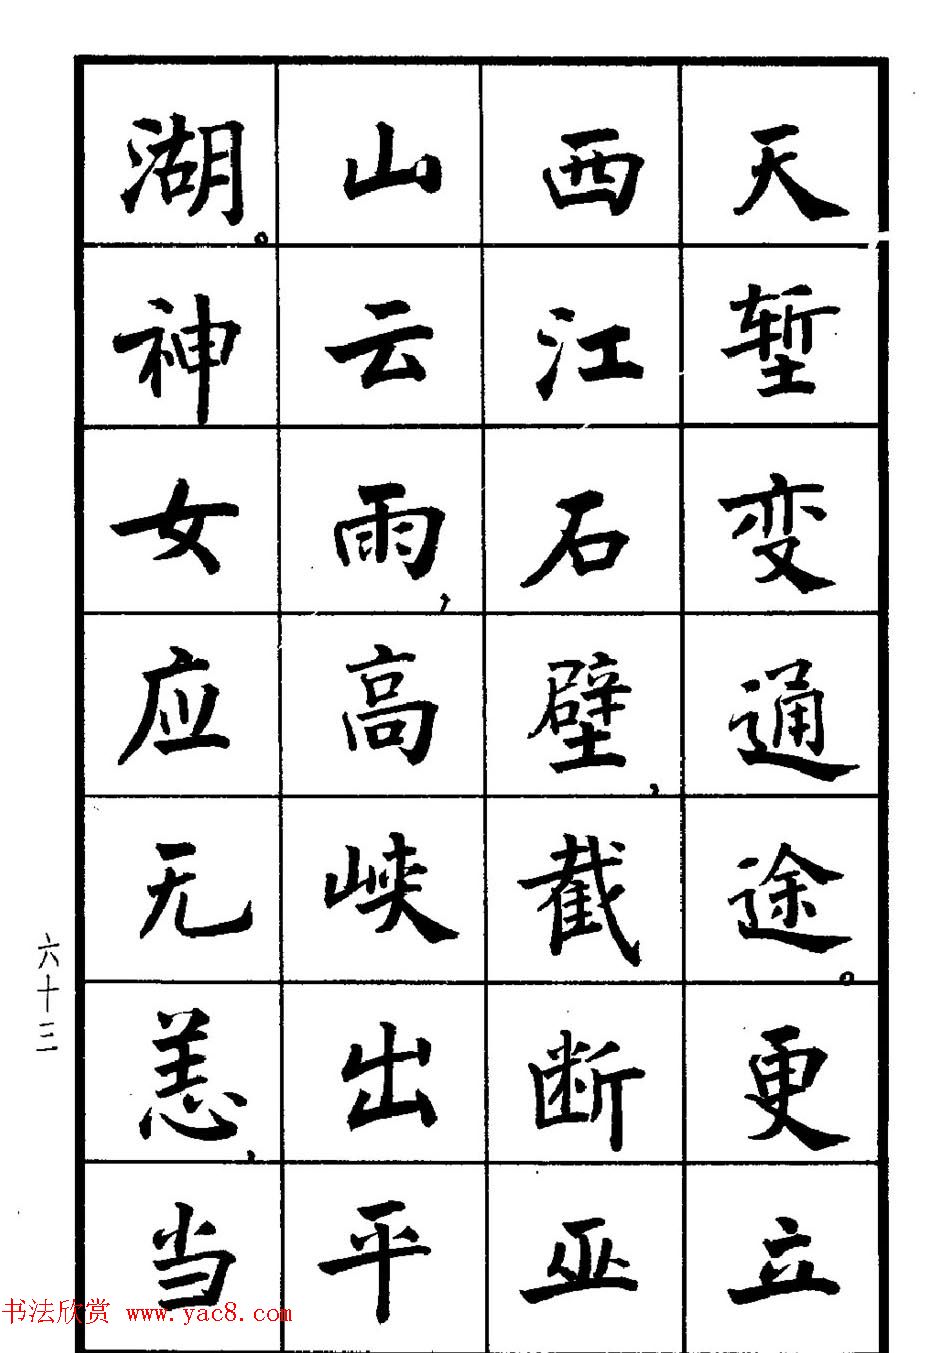 天堑变通途。更立
西江石壁,截断巫
山云雨,高峡出平
湖。神女应无恙,当
六十三
书法欣赏 www.yac8.com